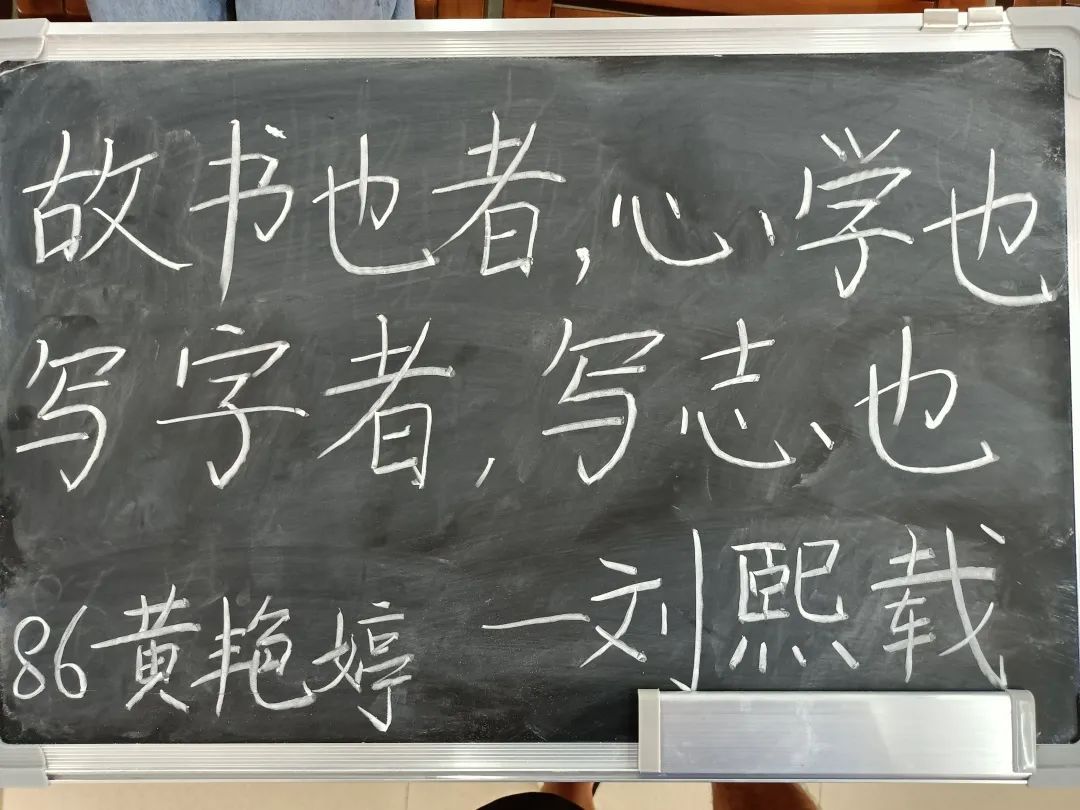 故书也者,心学也
写字者,写志也
一刘熙载
86黄艳婷